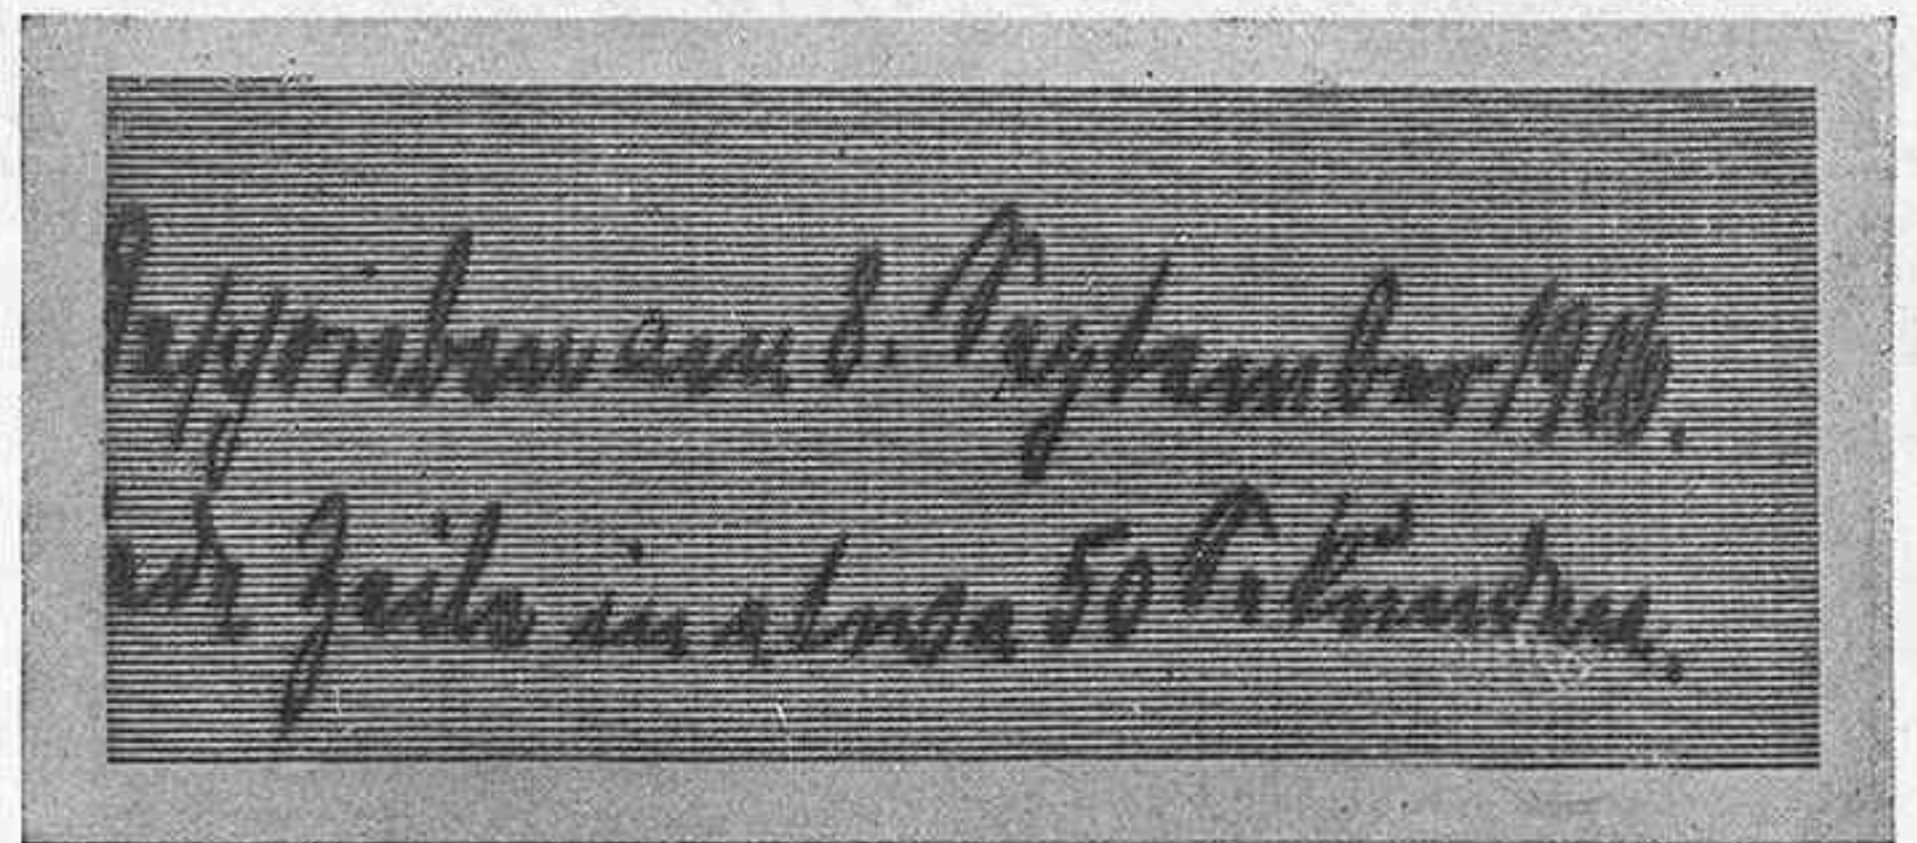 Geschrieben am 8. September 1906.
jede Zeile in etwa 50 Sekunden.